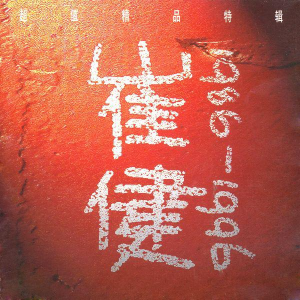 超值精品特辑
崔健
1986—1996